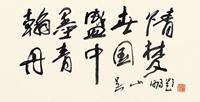 翰墨盛世情
丹青中国梦
吴山明题